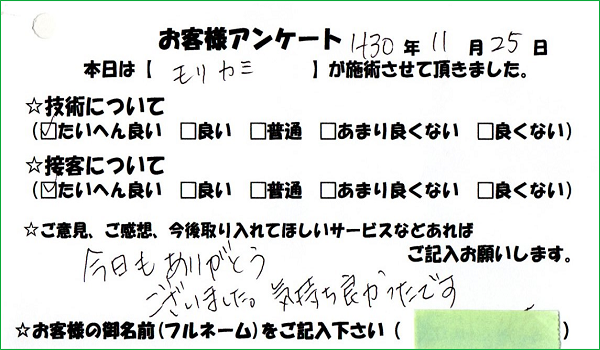 お客様アンケート H30 年 11 月 25 日
本日は【 モリカミ 】が施術させて頂きました。
☆技術について
(☑たいへん良い □良い □普通 □あまり良くない □良くない)
☆接客について
(☑たいへん良い □良い □普通 □あまり良くない □良くない)
☆ご意見、ご感想、今後取り入れてほしいサービスなどあれば
ご記入お願いします。
今日もありがとう
ございました。気持ち良かったです
☆お客様の御名前(フルネーム)をご記入下さい ( )